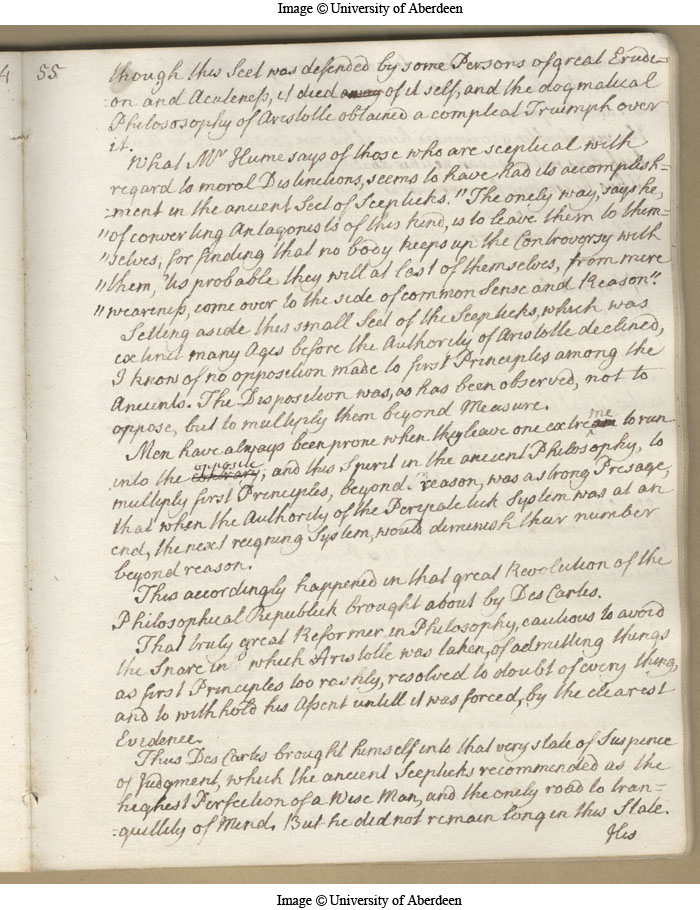 Image © University of Aberdeen
4 55
though this Sect was defended by some Persons of great Erudi=
=on and Acuteness, it died away of it self, and the dogmatical
Philososophy of Aristotle obtained a compleat Triumph over
it.
What Mr Hume says of those who are sceptical with
regard to moral Distinctions, seems to have had its accomplish=
=ment in the ancient Sect of Scepticks. "The onely way, says he,
"of converting Antagonists of this kind, is to leave them to them=
"selves; for finding that no body keeps up the Controversy with
"them, 'tis probable they will at last of themselves, from mere
"weariness, come over to the side of common Sense and Reason".
Setting aside this small Sect of the Scepticks, which was
extinct many Ages before the Authority of Aristotle declined,
I know of no opposition made to first Principles among the
Ancients. The Disposition was, as has been observed, not to
oppose, but to multiply them beyond Measure.
Men have always been prone when they leave one extreme to run
into the contrary opposite, and this Spirit in the ancient Philosophy, to
multiply first Principles, beyond reason, was a strong Presage,
that when the Authority of the Peripatetick System was at an
end, the next reigning System, would diminish their number
beyond reason.
This accordingly happened in that great Revolution of the
Philosophical Republick brought about by Des Cartes.
That truly great Reformer in Philosophy, cautious to avoid
the Snare in which Aristotle was taken, of admitting things
as first Principles too rashly, resolved to doubt of every thing,
and to withhold his Assent untill it was forced, by the clearest
Evidence.
Thus Des Cartes brought himself into that very state of Suspence
of Judgment, which the ancient Scepticks recommended as the
highest Perfection of a Wise Man, and the onely road to tran=
=quillity of Mind. But he did not remain long in this State.
His
Image © University of Aberdeen